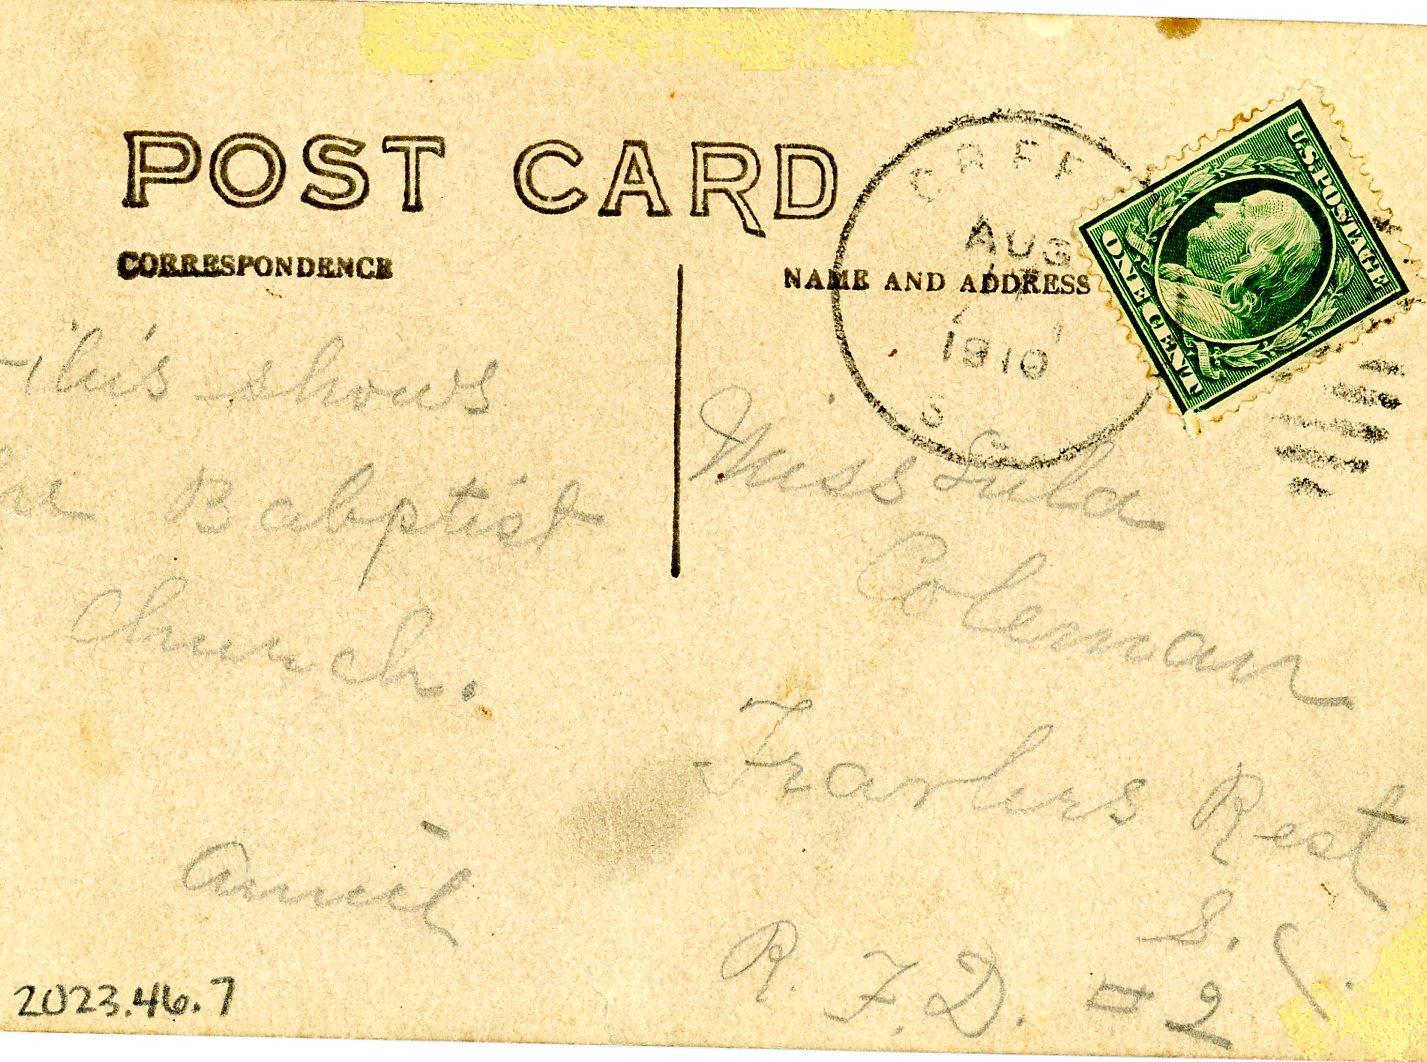 POST CARD
CORRESPONDENCE
NAME AND ADDRESS
GREE
AUG
1910
S
U.S. POSTAGE
ONE CENT
This shows
he Babptist
Church.
Miss Lula
Coleman
Travlers Rest
S. C.
R. F. D. #2
2023.46.7